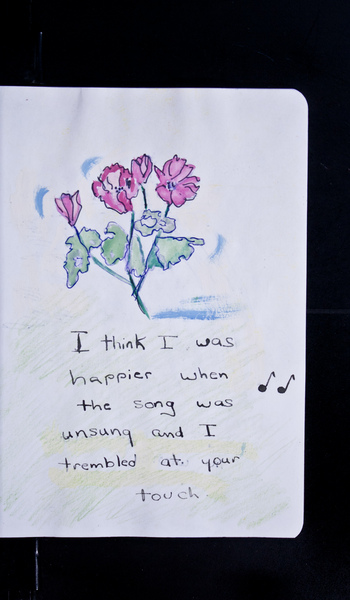 I think I was
happier when
the song was
unsung and I
trembled at your
touch.